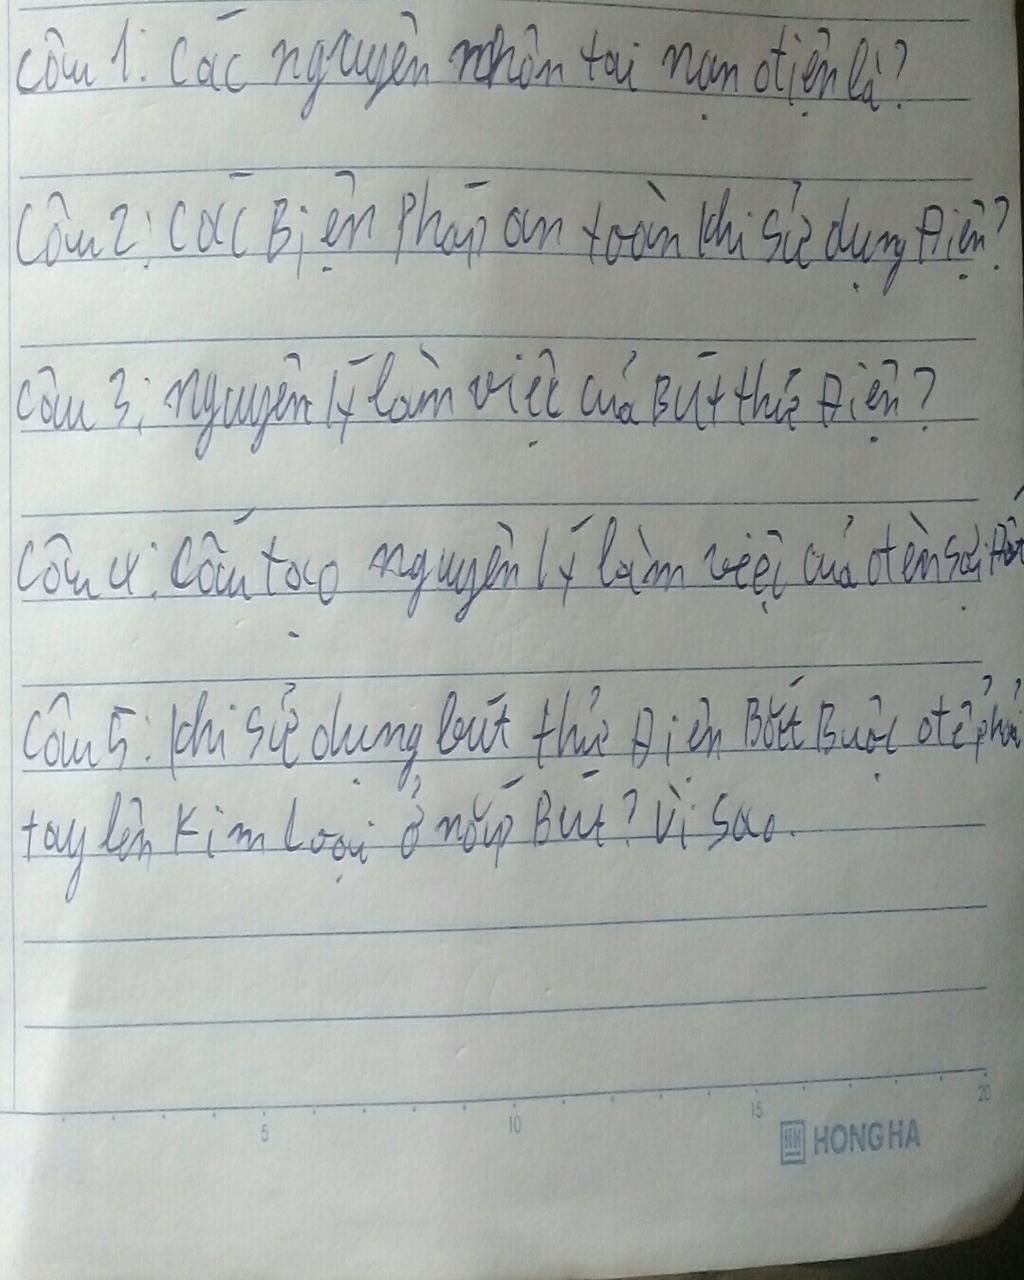 Câu 1: Các nguyên nhân tai nạn điện là?
Câu 2: Các Biện Pháp an toàn khi sử dụng Điện?
Câu 3: nguyên lý làm việc của Bút thử Điện?
Câu 4: Cấu tạo nguyên lý làm việc của đèn sợi đốt
Câu 5: Khi sử dụng bút thử Điện Bắt Buộc để phải
tay lên Kim Loại ở nắp Bút? Vì sao.
5 10 15 20
HONG HA